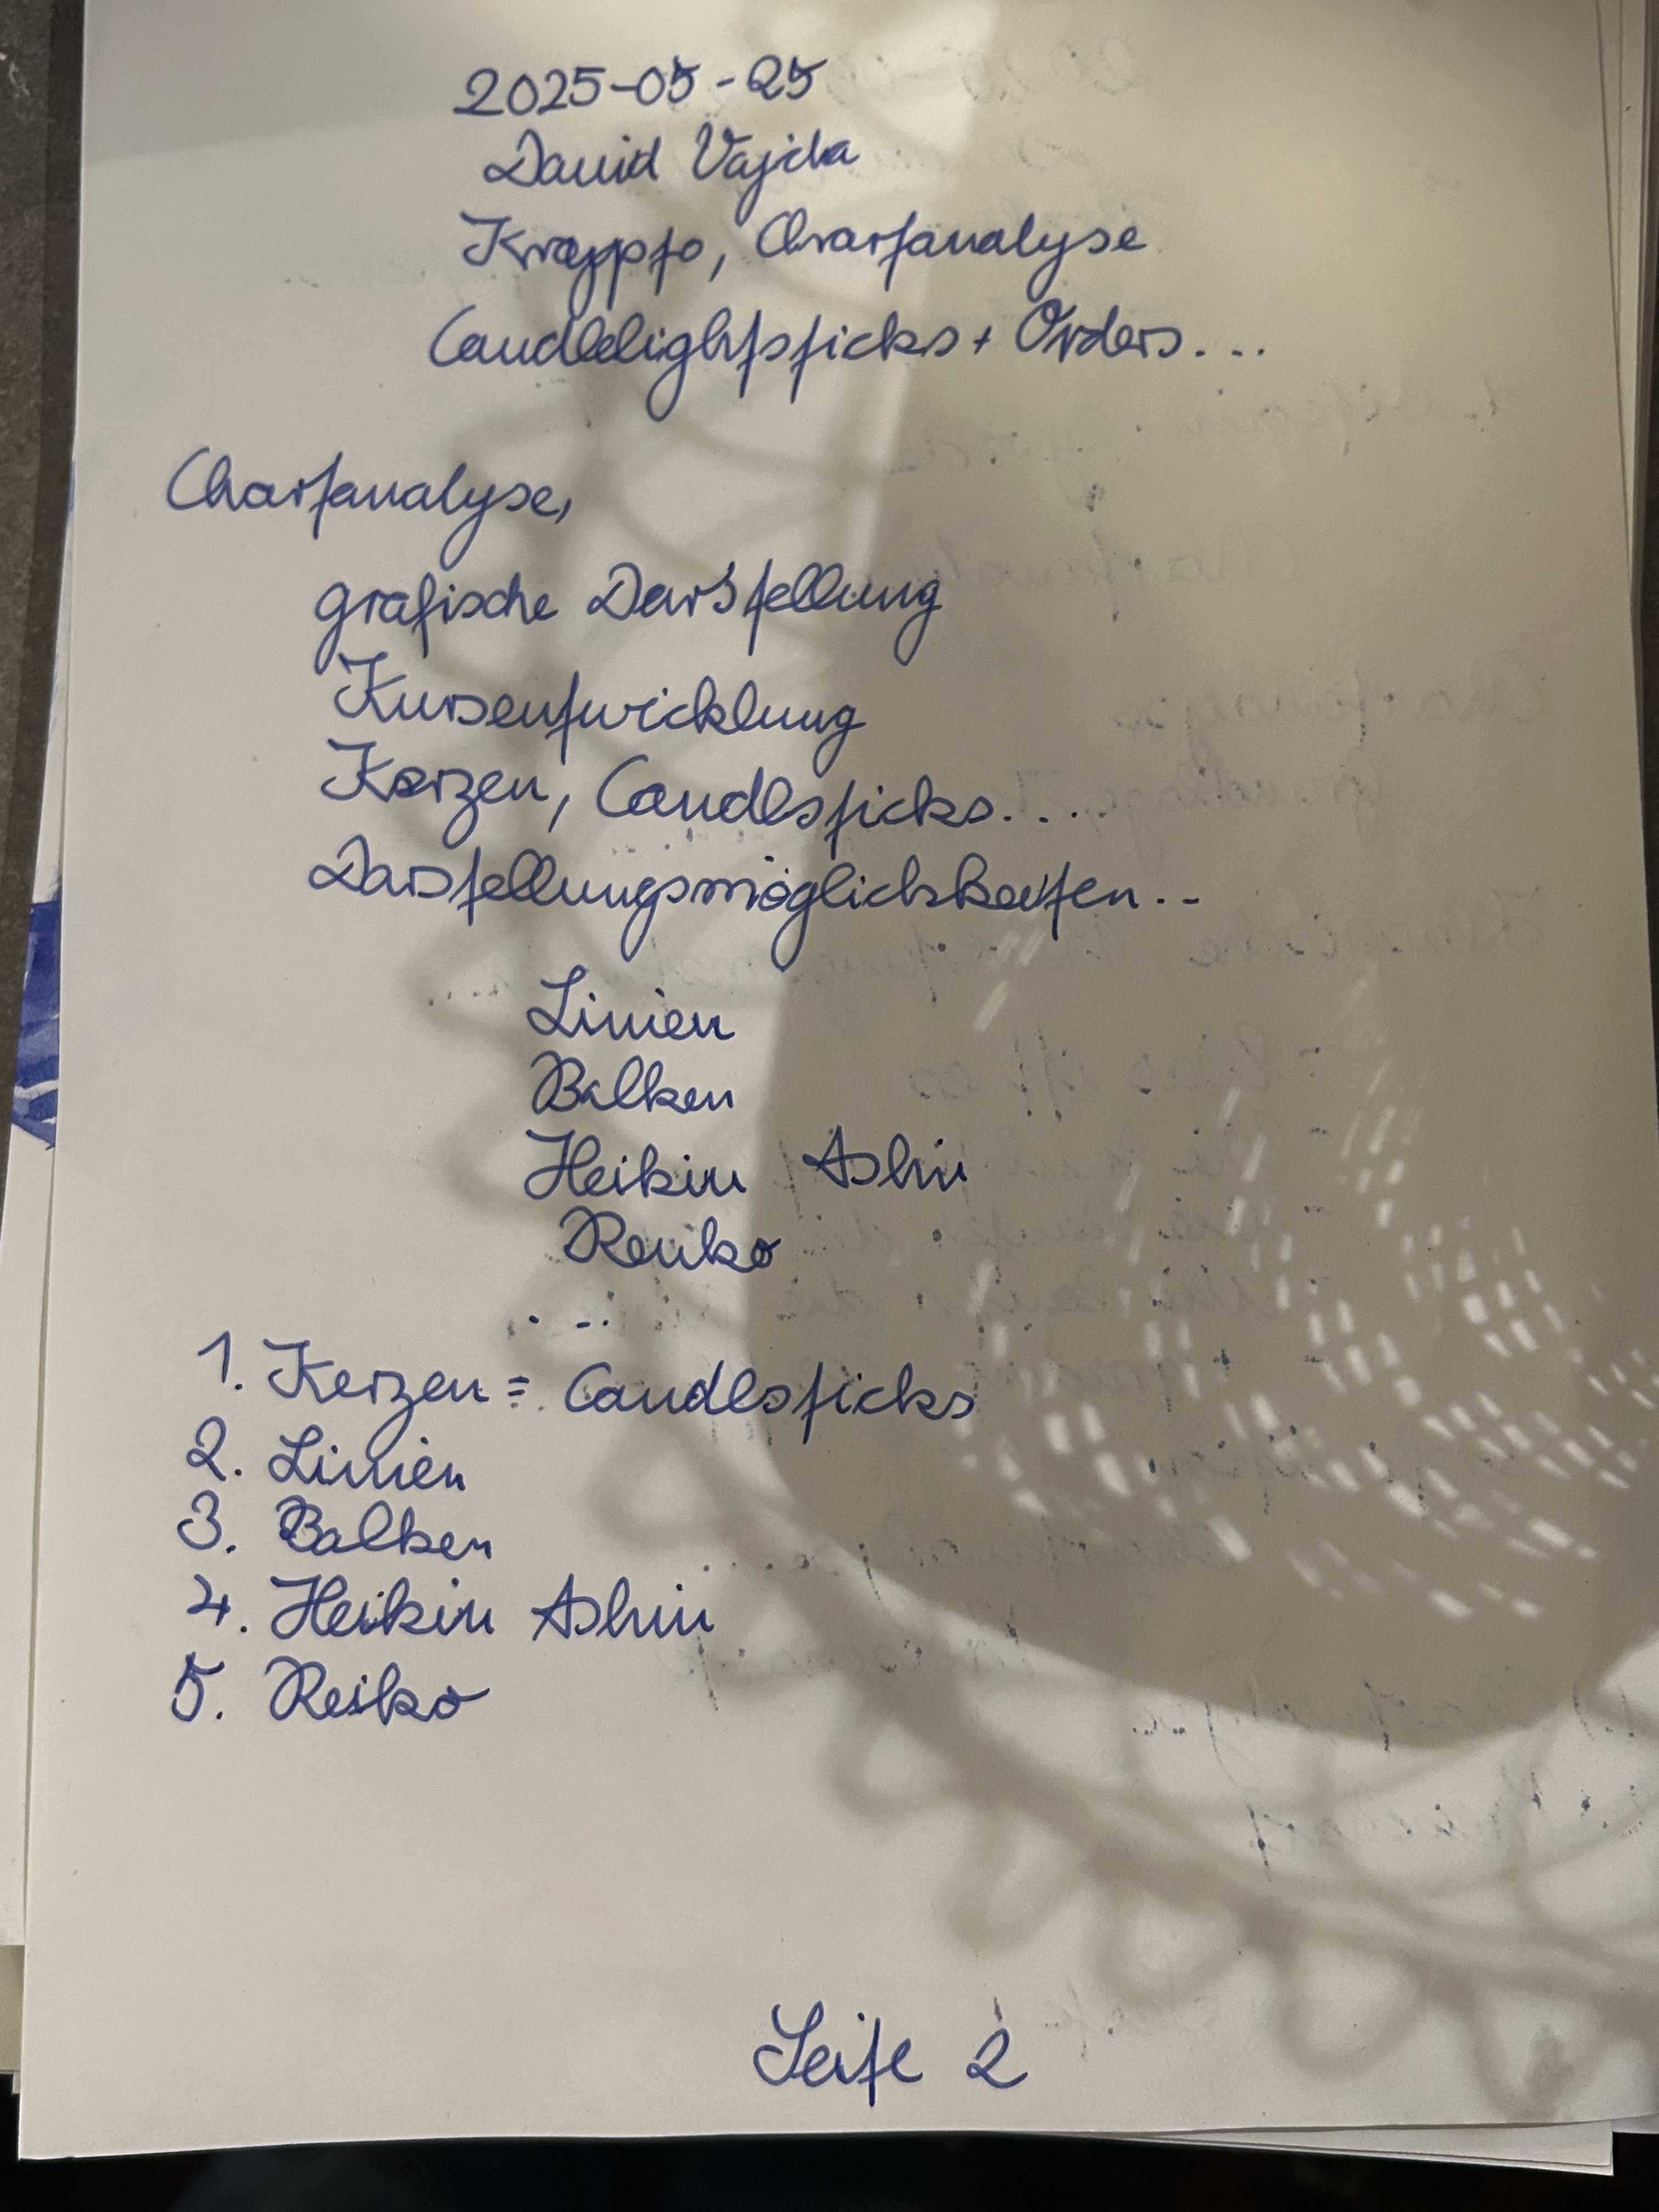 2025-05-25
David Vajda
Krappto, Chartanalyse
Candlelightsticks + Orders...
Chartanalyse,
grafische Darstellung
Kursentwicklung
Kerzen, Candlesticks....
Darstellungsmöglichkeiten..
Linien
Balken
Heikin Ashin
Renko
...
1. Kerzen = Candlesticks
2. Linien
3. Balken
4. Heikin Ashin
5. Reiko
Seite 2